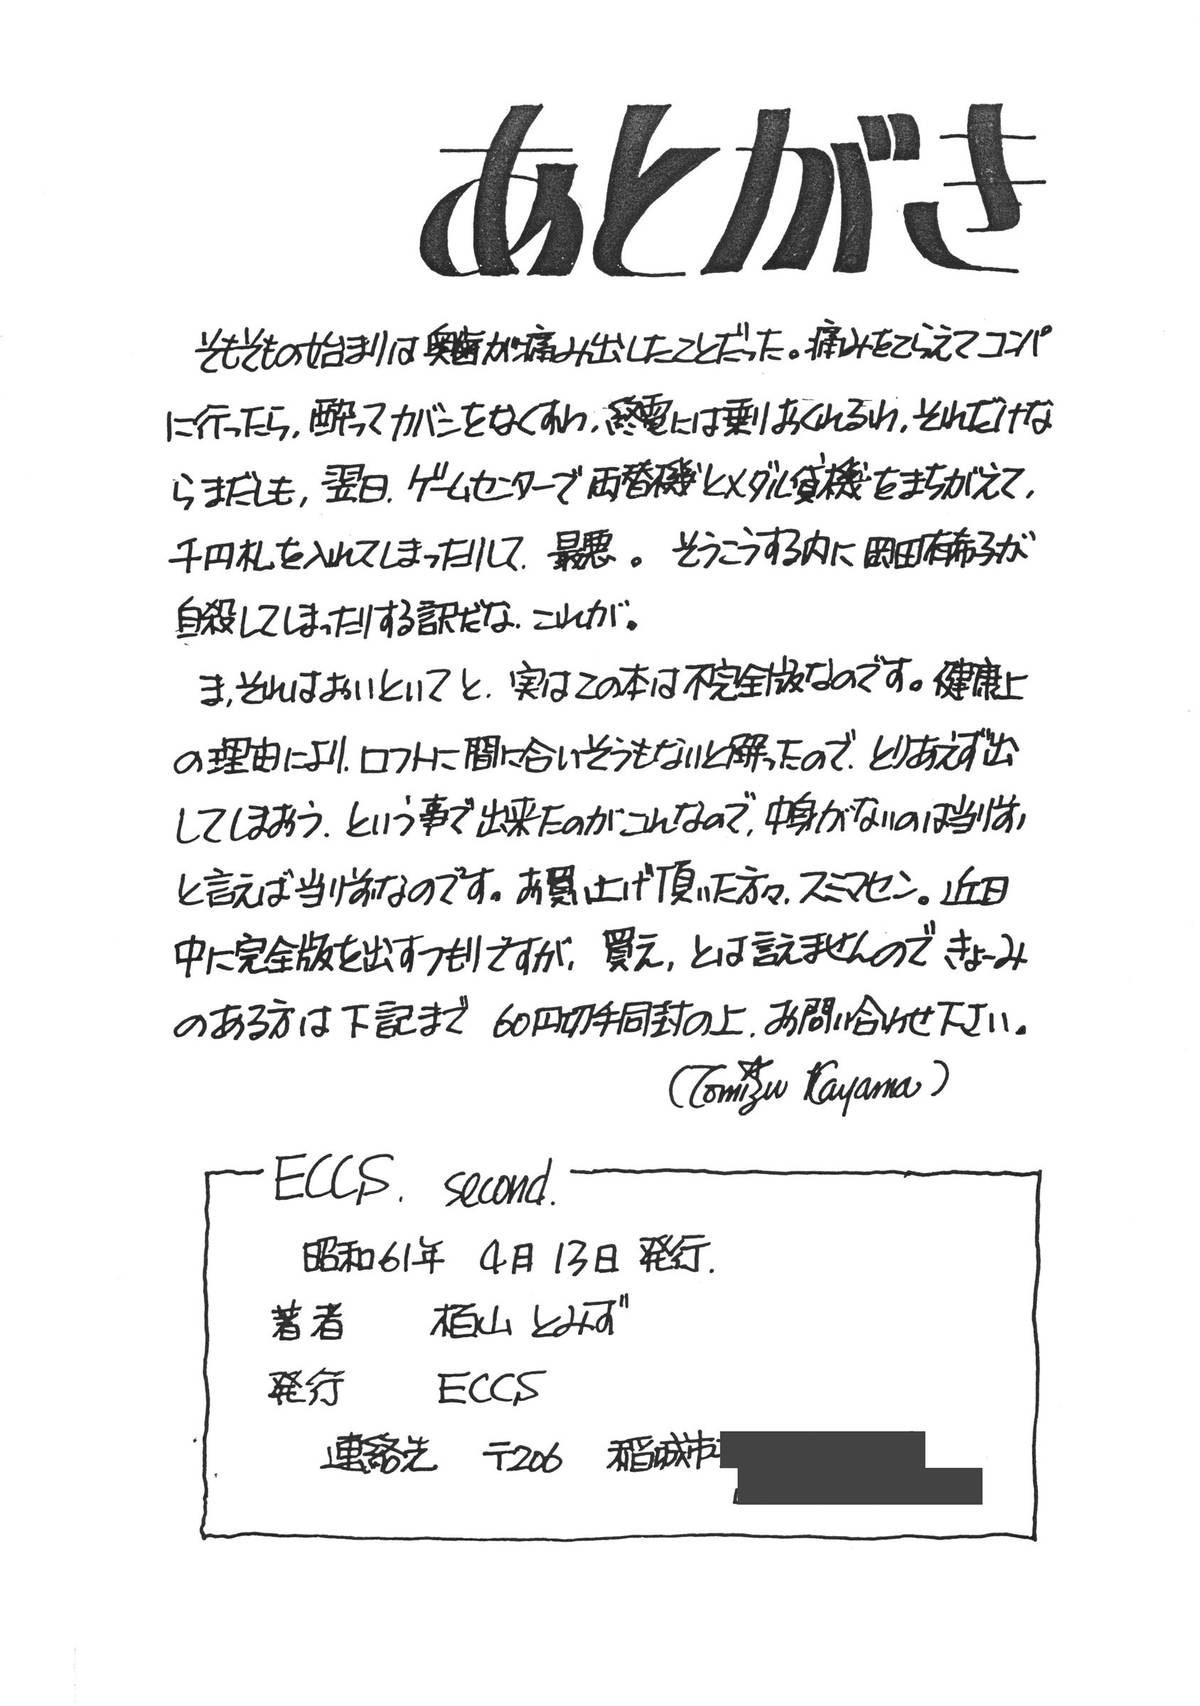 あとがき
そもそもの始まりは奥歯が痛み出したことだった。痛みをこらえてコンパ
に行ったら、酔ってカバンをなくすわ、終電には乗りおくれるわ、それだけな
らまだしも、翌日、ゲームセンターで両替機とメダル貸機をまちがえて、
千円札を入れてしまったりして、最悪。そうこうする内に岡田有希子が
自殺してしまったりする訳だな、これが。
ま、それはおいといてと、実はこの本は不完全版なのです。健康上
の理由により、ロフトに間に合いそうもないと解ったので、とりあえず出
してしまおう、という事で出来たのがこれなので、中身がないのは当り前
と言えば当り前なのです。お買い上げ頂いた方々、スミマセン。近日
中に完全版を出すつもりですが、買え、とは言えませんのできょーみ
のある方は下記まで 60円切手同封の上、お問い合わせ下さい。
(Tomizu Kayama)
ECCS. second.
昭和61年 4月13日 発行.
著者 栢山 とみず
発行 ECCS
連絡先 〒206 稲城市